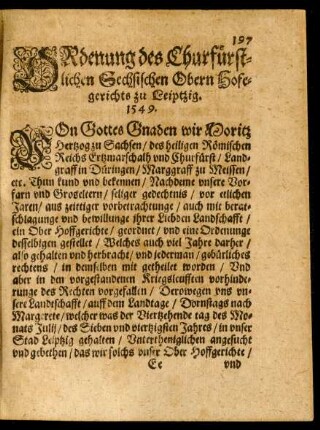 197
ORdenung des Churfürst-
lichen Sechsischen Obern Hofe-
gerichts zu Leiptzig.
1549.
VOn Gottes Gnaden wir Moritz
Hertzog zu Sachsen / des heiligen Römischen
Reichs Ertzmarschalh vnd Churfürst / Land-
graff in Düringen / Marggraff zu Meissen /
etc. Thun kund vnd bekennen / Nachdeme vnsere Vor-
farn vnd Grosseltern / seliger gedechtnis / vor etlichen
Jaren / aus zeitiger vorbetrachtunge / auch mit berat-
schlagunge vnd bewillunge jhrer Liebden Landschafft /
ein Ober Hoffgerichte / geordnet / vnd eine Ordenunge
desselbigen gestellet / Welches auch viel Jahre darher /
also gehalten vnd herbracht / vnd jederman / gebürliches
rechtens / in demselben mit getheilet worden / Vnd
aber in den vorgestandenen Kriegsleufften vorhinde-
runge des Rechten vorgefallen / Derowegen vns vn-
sere Landschafft / auff dem Landtage / Dornstags nach
Margarete / welcher was der Viertzehende tag des Mo-
nats Julij / des Sieben vnd viertzigsten Jahres / in vnser
Stad Leiptzig gehalten / Vnterthenglichen angesucht
vnd gebethen / das wir solchs vnser Ober Hoffgerichte /
Ee vnd